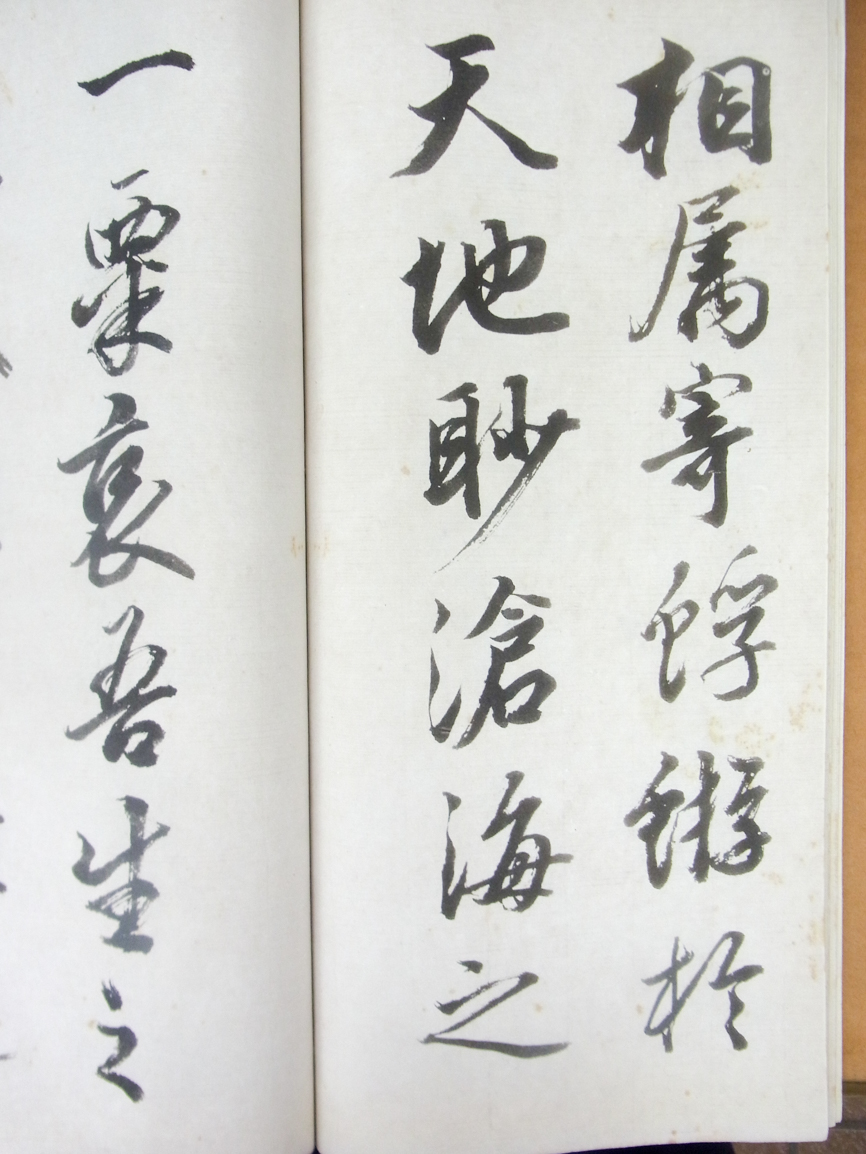 相属寄蜉蝣於
天地眇滄海之
一粟哀吾生之